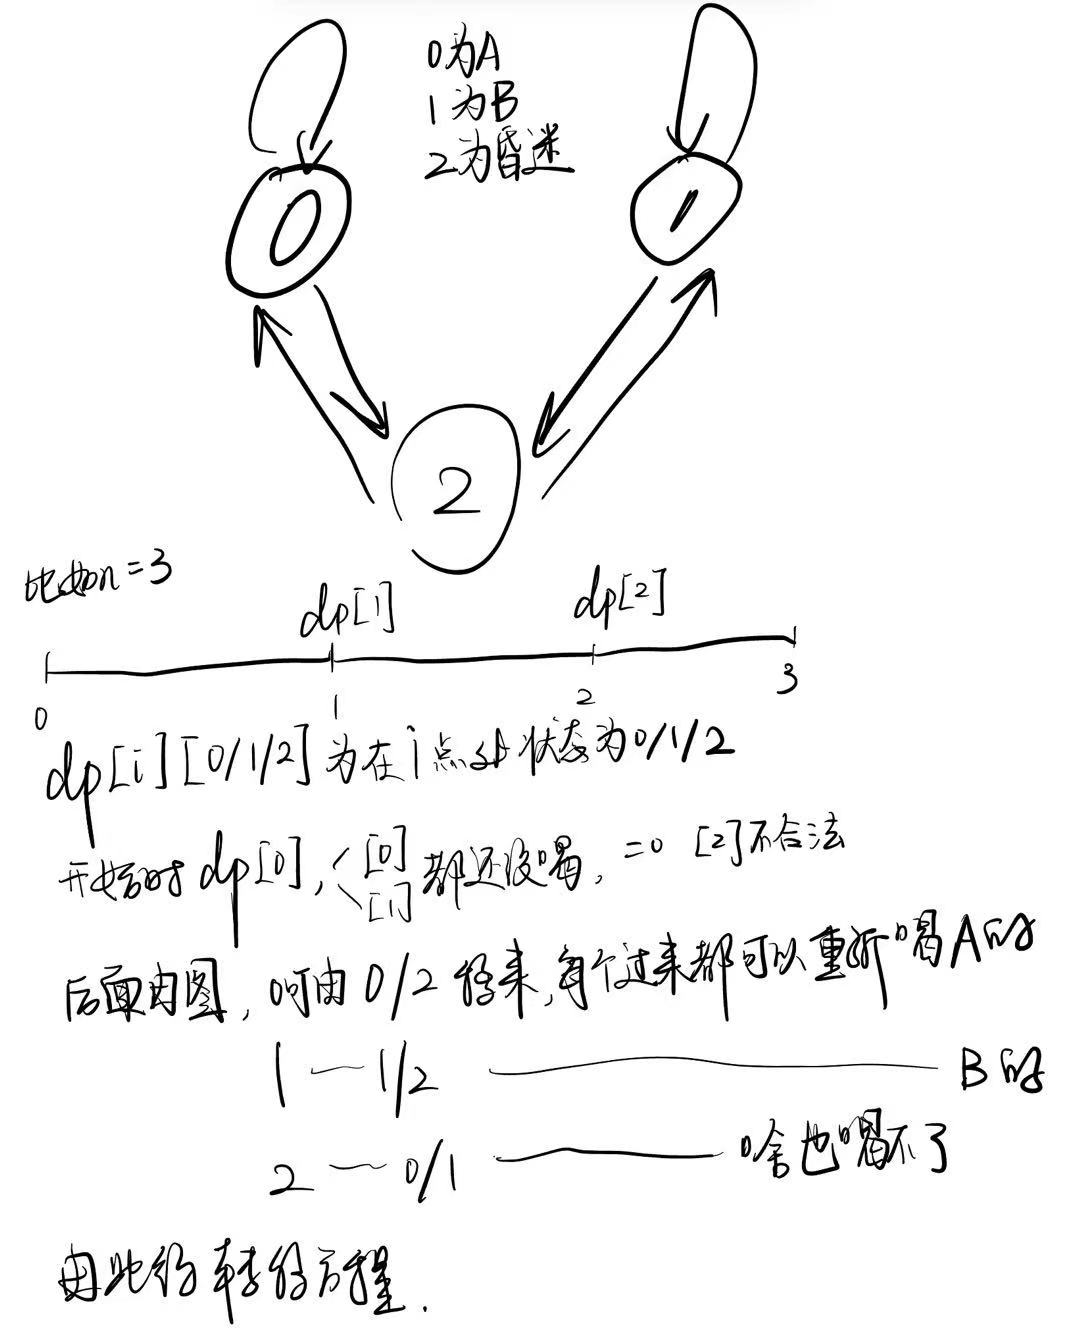 0为A
1为B
2为昏迷
0
1
2
比如n=3
dp[1]
dp[2]
0
1
2
3
dp[i][0/1/2]为在i点处状态为0/1/2
开始时dp[0], [0] 都还没喝, =0 [2]不合法
[1]
后面由图, 0可由0/2转来,每个过来都可以重新喝A的
1 — 1/2 —— B的
2 — 0/1 —— 啥也喝不了
由此得转移方程.